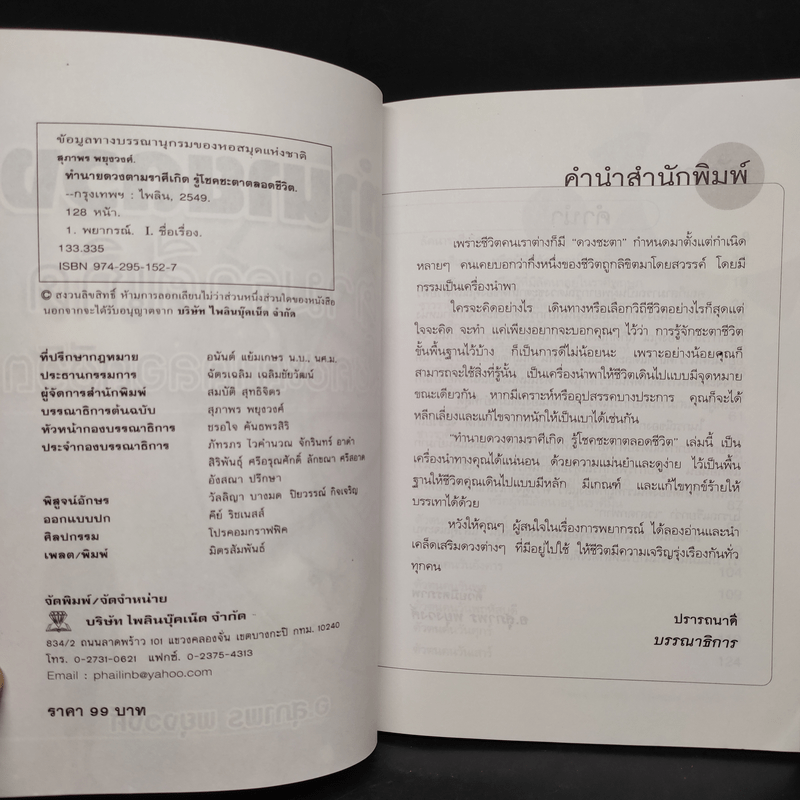 ข้อมูลทางบรรณานุกรมของหอสมุดแห่งชาติ
สุภาพร พยุงวงศ์.
ทำนายดวงตามราศีเกิด รู้โชคชะตาตลอดชีวิต.
--กรุงเทพฯ : ไพลิน, 2549.
128 หน้า.
1. พยากรณ์. I. ชื่อเรื่อง.
133.335
ISBN 974-295-152-7
© สงวนลิขสิทธิ์ ห้ามการลอกเลียนไม่ว่าส่วนหนึ่งส่วนใดของหนังสือ
นอกจากจะได้รับอนุญาตจาก บริษัท ไพลินบุ๊คเน็ต จำกัด
ที่ปรึกษากฎหมาย อนันต์ แย้มเกษร น.บ., นศ.ม.
ประธานกรรมการ ฉัตรเฉลิม เฉลิมชัยวัฒน์
ผู้จัดการสำนักพิมพ์ สมบัติ สุทธิจิตร
บรรณาธิการต้นฉบับ สุภาพร พยุงวงศ์
หัวหน้ากองบรรณาธิการ ขรอใจ คันธพรสิริ
ประจำกองบรรณาธิการ ภัทรภร ไวคำนวณ จักรินทร์ อาดำ
สิริพันธุ์ ศรีอรุณศักดิ์ ลักขณา ศรีสอาด
อังสณา ปรึกษา
พิสูจน์อักษร วัลลิญา บางมด ปิยวรรณ์ กิจเจริญ
ออกแบบปก คีย์ ริชเนสส์
ศิลปกรรม โปรคอมกราฟฟิค
เพลต/พิมพ์ มิตรสัมพันธ์
จัดพิมพ์/จัดจำหน่าย
บริษัท ไพลินบุ๊คเน็ต จำกัด
834/2 ถนนลาดพร้าว 101 แขวงคลองจั่น เขตบางกะปิ กทม. 10240
โทร. 0-2731-0621 แฟกซ์. 0-2375-4313
Email : phailinb@yahoo.com
ราคา 99 บาท
คำนำสำนักพิมพ์
เพราะชีวิตคนเราต่างก็มี "ดวงชะตา" กำหนดมาตั้งแต่กำเนิด
หลายๆ คนเคยบอกว่ากึ่งหนึ่งของชีวิตถูกลิขิตมาโดยสวรรค์ โดยมี
กรรมเป็นเครื่องนำพา
ใครจะคิดอย่างไร เดินทางหรือเลือกวิถีชีวิตอย่างไรก็สุดแต่
ใจจะคิด จะทำ แค่เพียงอยากจะบอกคุณๆ ไว้ว่า การรู้จักชะตาชีวิต
ขั้นพื้นฐานไว้บ้าง ก็เป็นการดีไม่น้อยนะ เพราะอย่างน้อยคุณก็
สามารถจะใช้สิ่งที่รู้นั้น เป็นเครื่องนำพาให้ชีวิตเดินไปแบบมีจุดหมาย
ขณะเดียวกัน หากมีเคราะห์หรืออุปสรรคบางประการ คุณก็จะได้
หลีกเลี่ยงและแก้ไขจากหนักให้เป็นเบาได้เช่นกัน
"ทำนายดวงตามราศีเกิด รู้โชคชะตาตลอดชีวิต" เล่มนี้ เป็น
เครื่องนำทางคุณได้แน่นอน ด้วยความแม่นยำและดูง่าย ไว้เป็นพื้น
ฐานให้ชีวิตคุณเดินไปแบบมีหลัก มีเกณฑ์ และแก้ไขทุกข์ร้ายให้
บรรเทาได้ด้วย
หวังให้คุณๆ ผู้สนใจในเรื่องการพยากรณ์ ได้ลองอ่านและนำ
เคล็ดเสริมดวงต่างๆ ที่มีอยู่ไปใช้ ให้ชีวิตมีความเจริญรุ่งเรืองกันทั่ว
ทุกคน
ปรารถนาดี
บรรณาธิการ